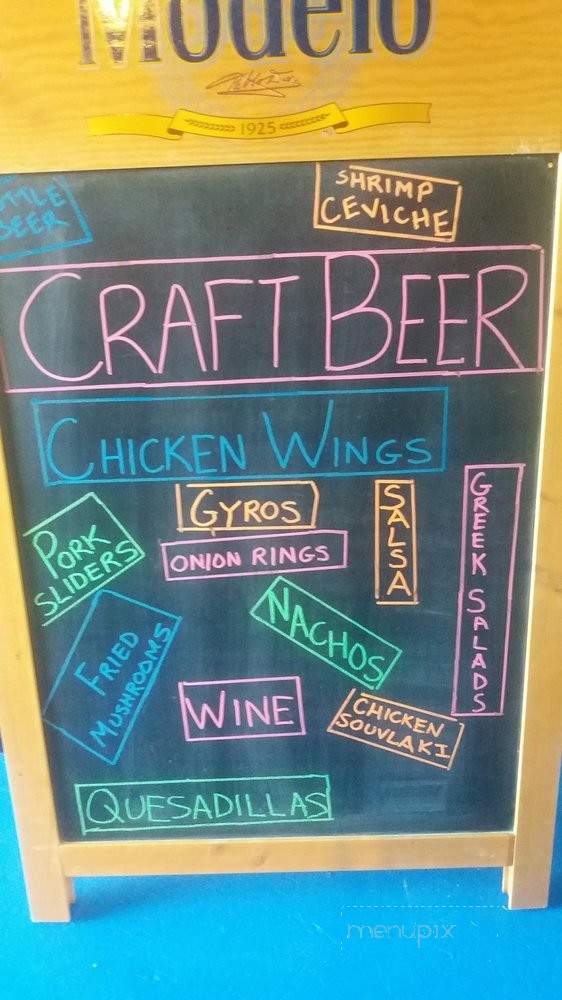 Modelo
1925
BEER
SHRIMP
CEVICHE
CRAFT BEER
CHICKEN WINGS
GYROS
SALSA
GREEK SALADS
PORK
SLIDERS
ONION RINGS
NACHOS
FRIED
MUSHROOMS
WINE
CHICKEN
SOUVLAKI
QUESADILLAS
menupix